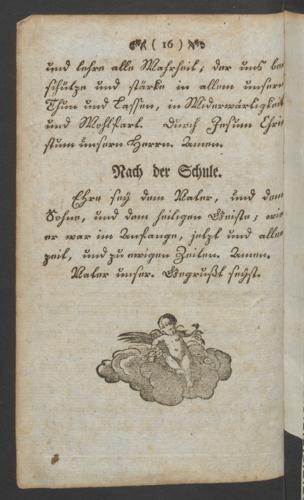 ( 16 )
und lehre alle Wahrheit, der uns be
schütze und stärke in allem unserm
Thun und Lassen, in Widerwärtigkeit
und Wohlfart. Durch Jesum Chri
stum unsern Herrn. Amen.
Nach der Schule.
Ehre sey dem Vater, und dem
Sohne, und dem heiligen Geiste; wie
er war im Anfange, jetzt und alle
zeit, und zu ewigen Zeiten. Amen.
Vater unser. Gegrußt seyst.